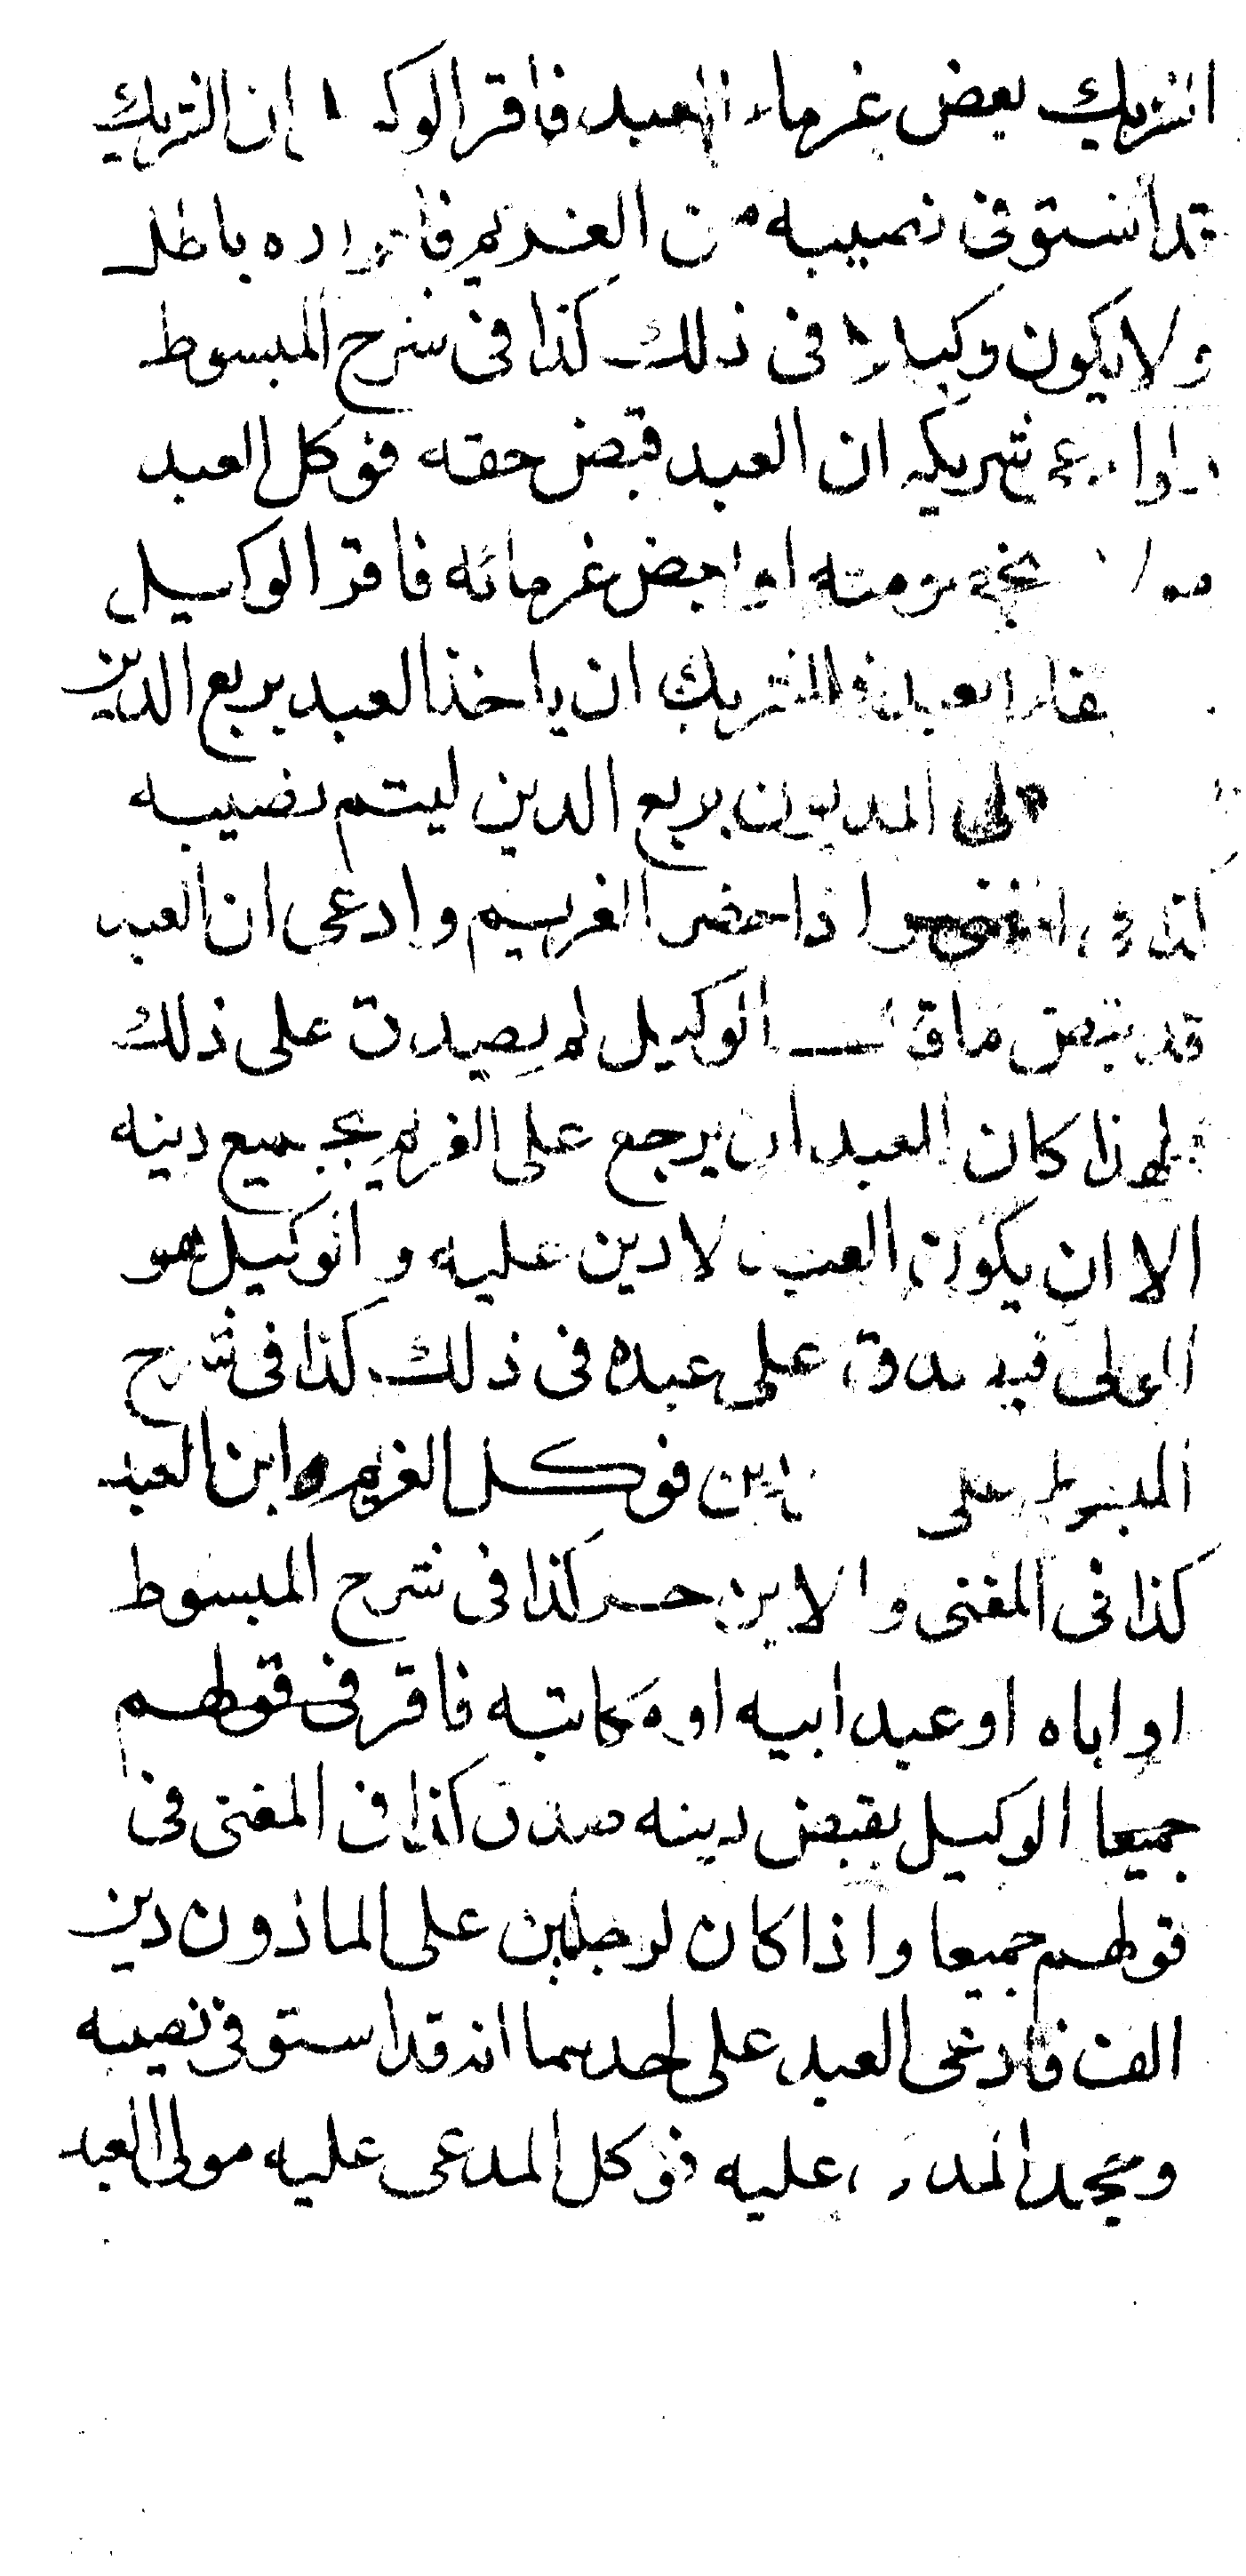 الشريك بعض غرماء العبد فاقر الوكيل ان الشريك
قد استوفى نصيبه من الغريم فاقراره باطل
ولا يكون وكيلا فى ذلك كذا فى شرح المبسوط
ولو ادعى شريكه ان العبد قبض حقه فوكل العبد
بخصومته او بعض غرمائه فاقر الوكيل
العبد فللشريك ان ياخذ العبد بربع الدين
على المديون بربع الدين ليتم نصيبه
كذا فى المغنى واذا حضر الغريم وادعى ان العبد
قد قبض ما قال الوكيل لم يصدق على ذلك
لهذا كان للعبد ان يرجع على الغريم بجميع دينه
الا ان يكون العبد لا دين عليه والوكيل هو
المولى فيصدق على عبده فى ذلك كذا فى شرح
المبسوط على دين فوكل الغريم ابن العبد
كذا فى المغنى والابن حر كذا فى شرح المبسوط
او اباه او عبد ابيه او مكاتبه فاقر فى قولهم
جميعا الوكيل بقبض دينه صدق كذا فى المغنى فى
قولهم جميعا واذا كان لرجلين على الماذون دين
الف فادعى العبد على احدهما انه قد استوفى نصيبه
وجحد المدعى عليه فوكل المدعى عليه مولى العبد